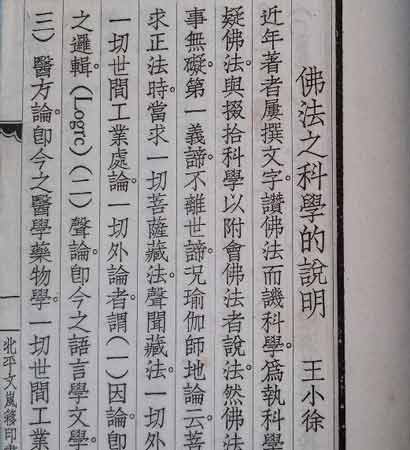 佛法之科學的說明
王小徐
近年著者屢撰文字。讚佛法而譏科學。爲執科學
疑佛法。與掇拾科學以附會佛法者說法。然佛法
事無礙。第一義諦。不離世諦。況瑜伽師地論云。菩
求正法時。當求一切菩薩藏法。聲聞藏法。一切外
一切世間工業處論。一切外論者。謂(一)因論。卽
之邏輯(Logrc)(二)聲論。卽今之語言學文學。
三)醫方論。卽今之醫學藥物學。一切世間工業
一
北平文嵐簃印書